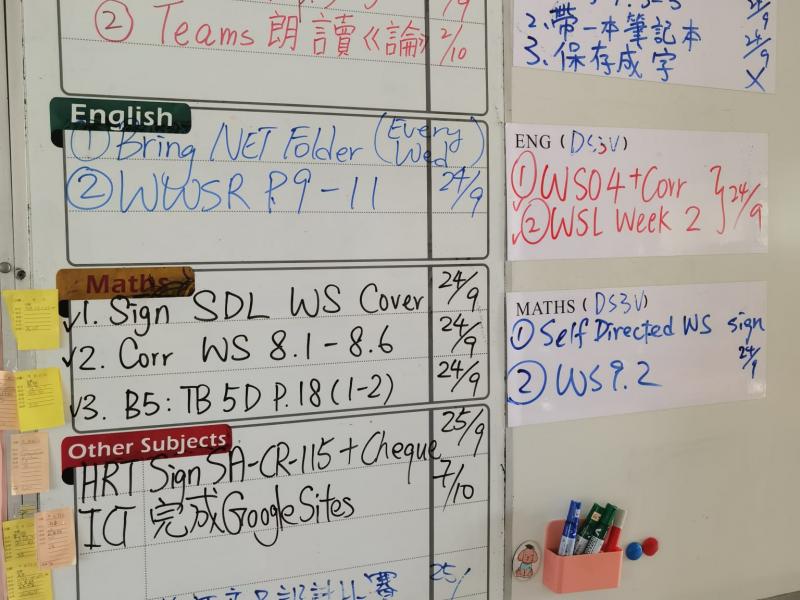 ② Teams 朗讀《論》 2/10
English
① Bring NET Folder (Every Wed)
② WWSR P.9-11 24/9
Maths
✓1. Sign SDL WS Cover 24/9
✓2. Corr WS 8.1-8.6 24/9
✓3. B5: TB 5D P.18 (1-2) 24/9
Other Subjects
HRT Sign SA-CR-115 + Cheque 25/9
ICT 完成 Google Sites 7/10
25/
2. 帶一本筆記本 24/9
3. 保存成字 X
ENG (DS3V)
① WS04 + Corr
② WSL Week 2 } 24/9
MATHS (DS3V)
① Self Directed WS sign
② WS 9.2